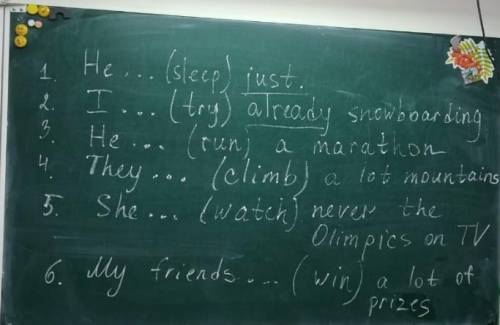 1. He ... (sleep) just.
2. I ... (try) already snowboarding
3. He ... (run) a marathon
4. They ... (climb) a lot mountains
5. She ... (watch) never the
Olimpics on TV
6. My friends .... (win) a lot of
prizes